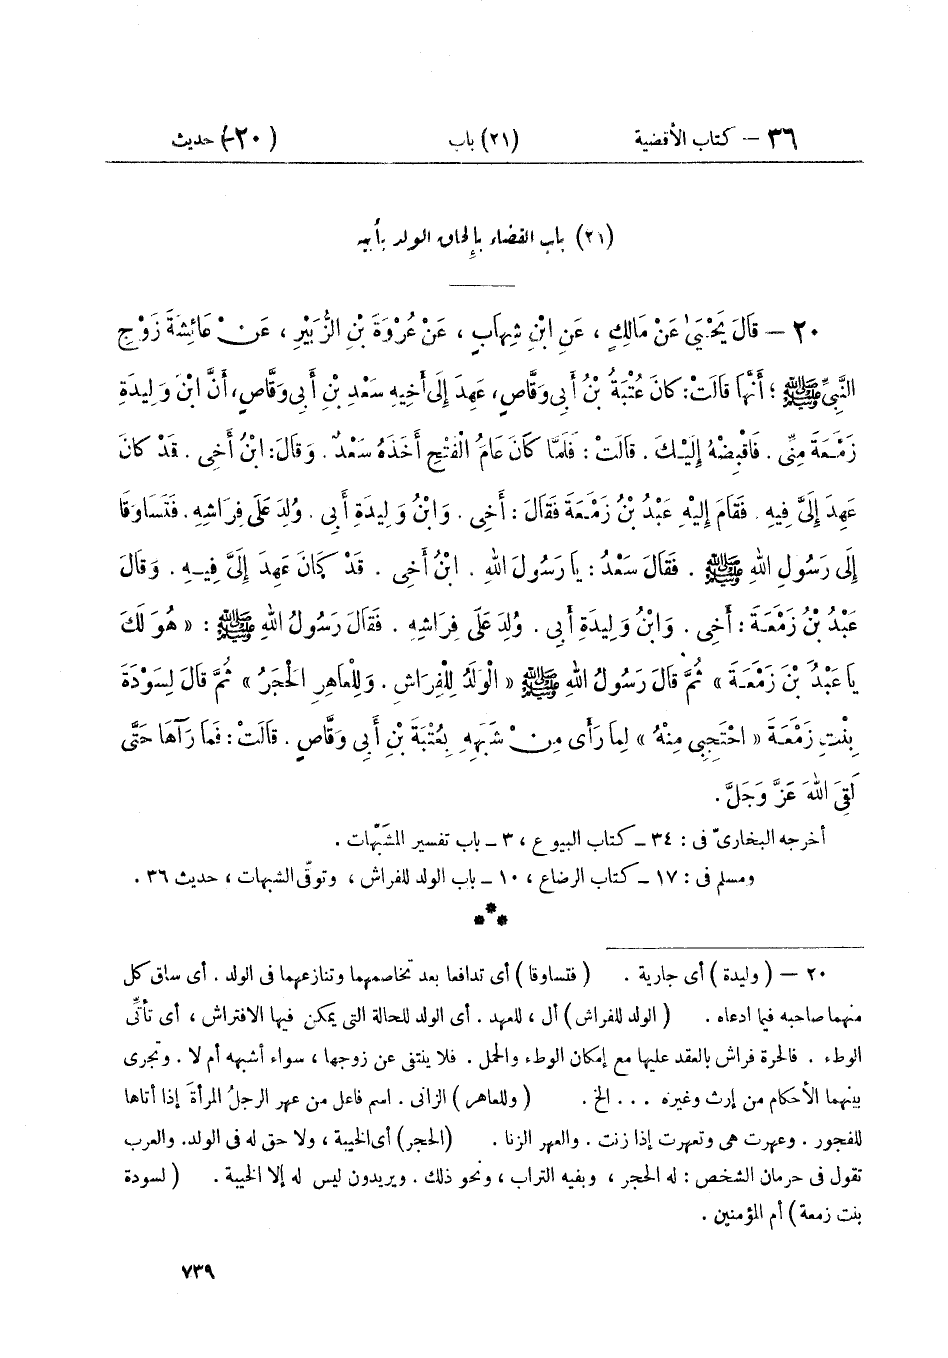 ٣٦ – كتاب الأقضية (٢١) باب (٢٠) حديث
(٢١) باب القضاء بإلحاق الولد بأبيه
٢٠ – قَالَ يَحْيَىٰ عَنْ مَالِكٍ ، عَنِ ابْنِ شِهَابٍ ، عَنْ عُرْوَةَ بْنِ الزُّبَيْرِ ، عَنْ عَائِشَةَ زَوْجِ
النَّبِيِّ ﷺ ؛ أَنَّهَا قَالَتْ: كَانَ عُتْبَةُ بْنُ أَبِى وَقَّاصٍ، عَهِدَ إِلَى أَخِيهِ سَعْدِ بْنِ أَبِى وَقَّاصٍ، أَنَّ ابْنَ وَلِيدَةِ
زَمْعَةَ مِنِّى . فَاقْبِضْهُ إِلَيْكَ . قَالَتْ : فَلَمَّا كَانَ عَامُ الْفَتْحِ أَخَذَهُ سَعْدٌ . وَقَالَ: ابْنُ أَخِى . قَدْ كَانَ
عَهِدَ إِلَىَّ فِيهِ . فَقَامَ إِلَيْهِ عَبْدُ بْنُ زَمْعَةَ فَقَالَ : أَخِى . وَابْنُ وَلِيدَةِ أَبِى . وُلِدَ عَلَى فِرَاشِهِ . فَتَسَاوَقَا
إِلَى رَسُولِ اللهِ ﷺ . فَقَالَ سَعْدٌ : يَا رَسُولَ اللهِ . ابْنُ أَخِى . قَدْ كَانَ عَهِدَ إِلَىَّ فِيهِ . وَقَالَ
عَبْدُ بْنُ زَمْعَةَ : أَخِى . وَابْنُ وَلِيدَةِ أَبِى . وُلِدَ عَلَى فِرَاشِهِ . فَقَالَ رَسُولُ اللهِ ﷺ : « هُوَ لَكَ
يَا عَبْدُ بْنَ زَمْعَةَ » ثُمَّ قَالَ رَسُولُ اللهِ ﷺ « الْوَلَدُ لِلْفِرَاشِ . وَلِلْعَاهِرِ الْحَجَرُ » ثُمَّ قَالَ لِسَوْدَةَ
بِنْتِ زَمْعَةَ « احْتَجِبِى مِنْهُ » لِمَا رَأَى مِنْ شَبَهِهِ بِعُتْبَةَ بْنِ أَبِى وَقَّاصٍ . قَالَتْ : فَمَا رَآهَا حَتَّى
لَقِىَ اللهَ عَزَّ وَجَلَّ .
أخرجه البخارىّ فى : ٣٤ – كتاب البيوع ، ٣ – باب تفسير المشَبَّهات .
ومسلم فى : ١٧ – كتاب الرضاع ، ١٠ – باب الولد للفراش ، وتوقّى الشبهات ، حديث ٣٦ .
٢٠ – ( وليدة ) أى جارية . ( فتساوقا ) أى تدافعا بعد تخاصمهما وتنازعهما فى الولد . أى ساق كل
منهما صاحبه فيما ادعاه . ( الولد للفراش ) أل ، للعهد . أى الولد للحالة التى يمكن فيها الافتراش ، أى تأتّى
الوطء . فالحرة فراش بالعقد عليها مع إمكان الوطء والحمل . فلا ينتفى عن زوجها ، سواء أشبهه أم لا . وتجرى
بينهما الأحكام من إرث وغيره ... الخ . ( وللعاهر ) الزانى . اسم فاعل من عهر الرجلُ المرأةَ إذا أتاها
للفجور . وعهرت هى وتعهرت إذا زنت . والعهر الزنا . (الحجر) أى الخيبة ، ولا حق له فى الولد. والعرب
تقول فى حرمان الشخص : له الحجر ، وبفيه التراب ، ونحو ذلك . ويريدون ليس له إلا الخيبة . ( لسودة
بنت زمعة) أم المؤمنين .
٧٣٩